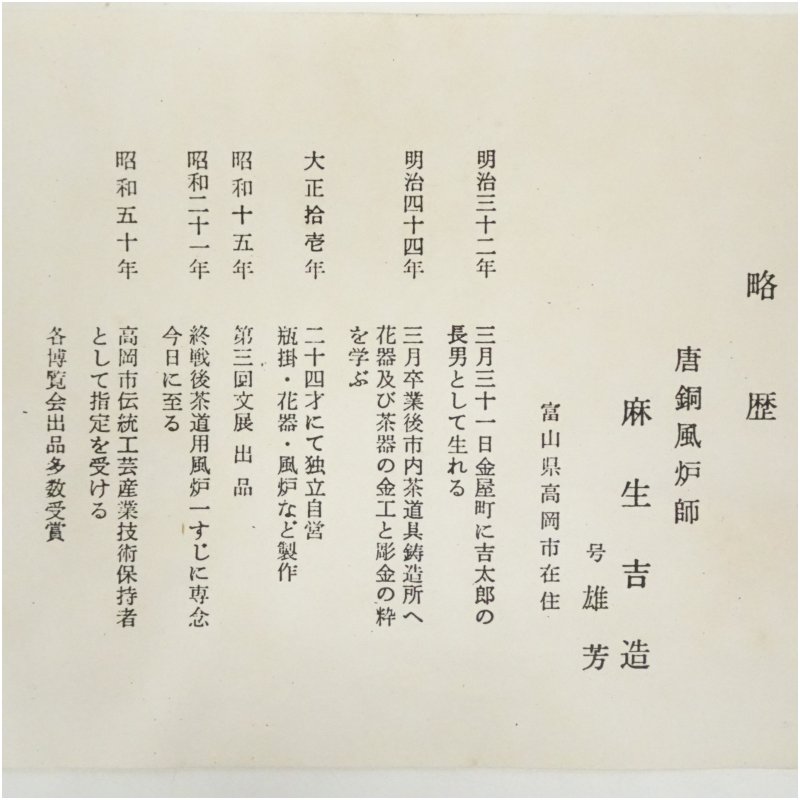 略歴
唐銅風炉師
麻生吉造
号 雄芳
富山県高岡市在住
明治三十二年 三月三十一日金屋町に吉太郎の
長男として生れる
明治四十四年 三月卒業後市内茶道具鋳造所へ
花器及び茶器の金工と彫金の粋
を学ぶ
大正拾壱年 二十四才にて独立自営
瓶掛・花器・風炉など製作
昭和十五年 第三回文展出品
昭和二十一年 終戦後茶道用風炉一すじに専念
今日に至る
昭和五十年 高岡市伝統工芸産業技術保持者
として指定を受ける
各博覧会出品多数受賞